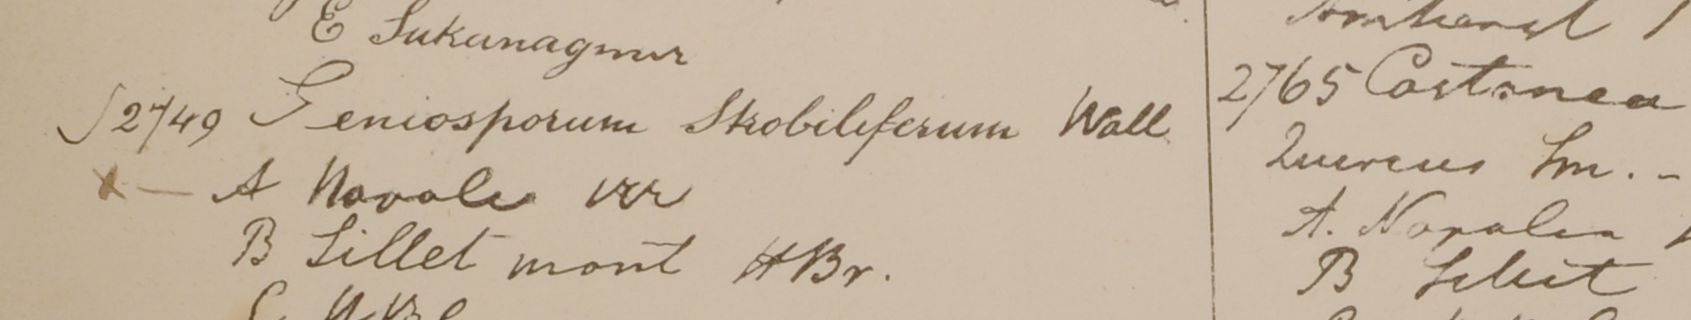 E Sukanagur
∫2749 Geniosporum Strobiliferum Wall
x — A Napalia
B Sillet mont HBr.
C
Amherst
2765 Castanea
Quercus Sm. -
A. Napalia
B Sillet